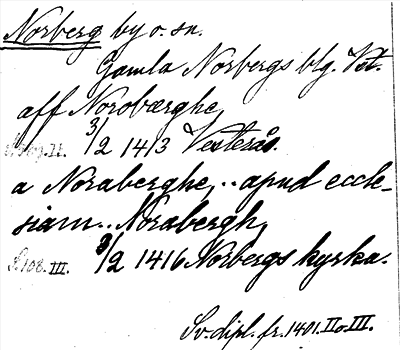 Norberg by o. sn.
Gamla Norbergs blg. Vst.
aff Norobærghe
3/2 1413 Vesterås.
a Noraberghe, .. apud eccle-
siam .. Norabergh,
S. 108. III. 3/2 1416 Norbergs kyrka.
Sv. dipl. fr. 1401. II o. III.